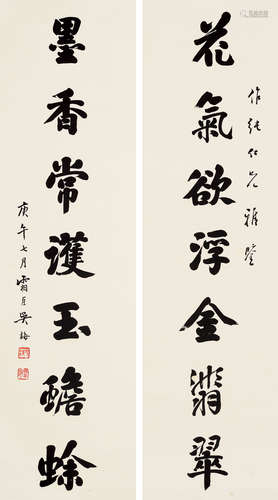 花氣欲浮金翡翠
仁兄雅鑒
墨香常護玉蟾蜍
庚午七月霜厓吳梅